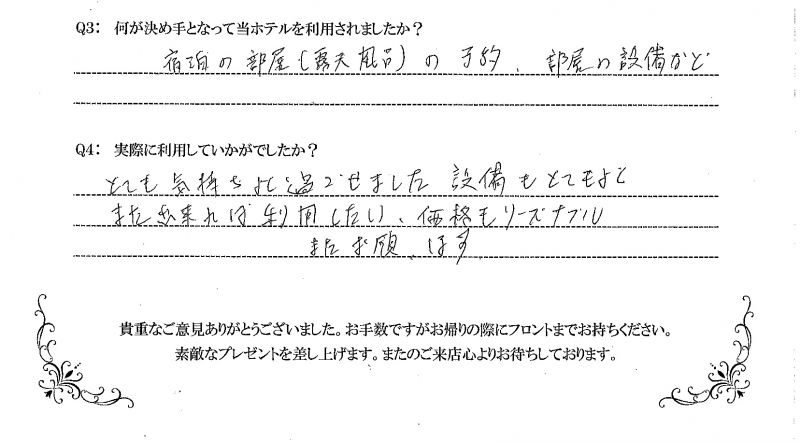 Q3: 何が決め手となって当ホテルを利用されましたか？
宿泊の部屋(露天風呂)の予約、部屋の設備など
Q4: 実際に利用していかがでしたか？
とても気持ちよく過ごせました 設備もとてもよく
また出来れば利用したい、価格もリーズナブル
またお願いします
貴重なご意見ありがとうございました。お手数ですがお帰りの際にフロントまでお持ちください。
素敵なプレゼントを差し上げます。またのご来店心よりお待ちしております。